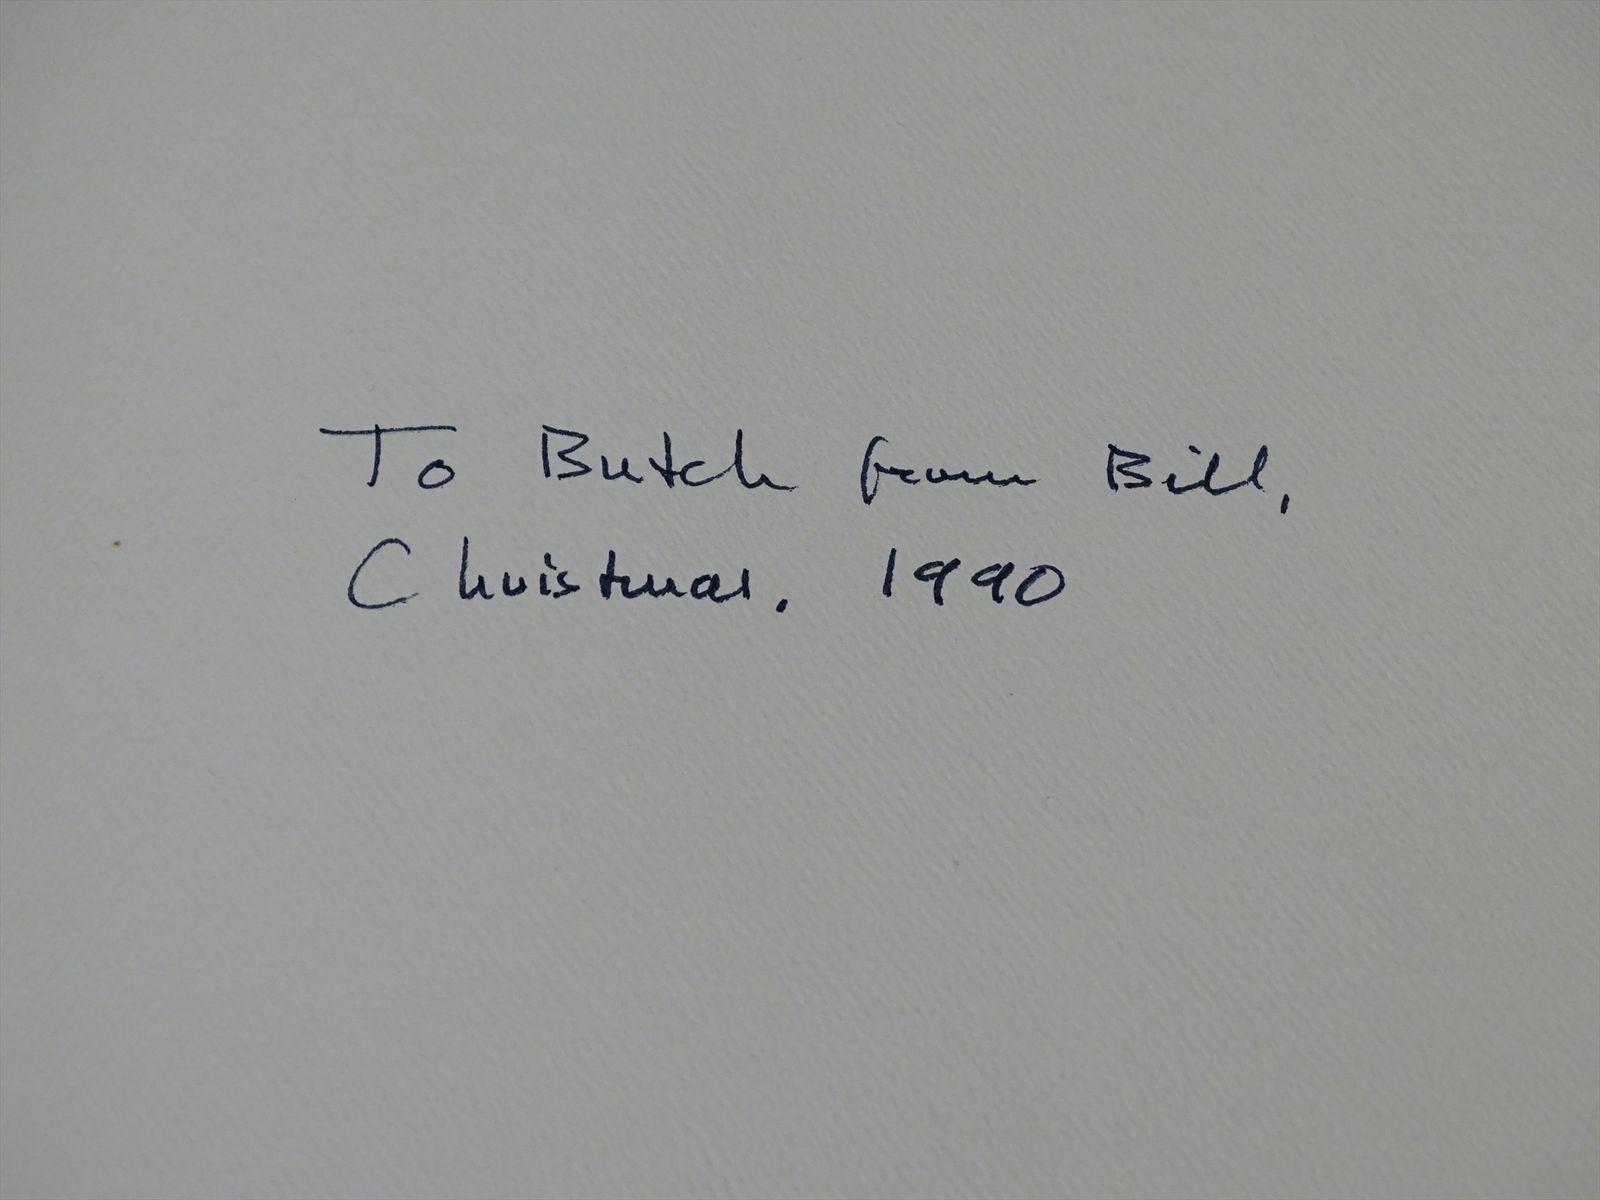 To Butch from Bill,
Christmas. 1990